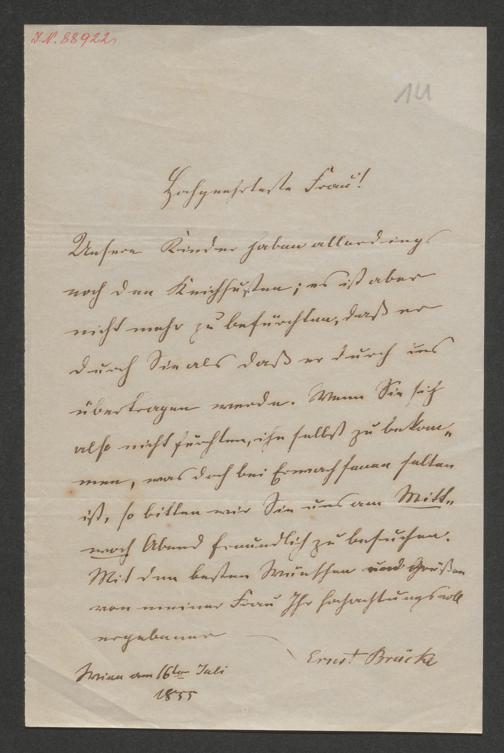 I.N. 88922
14
Hochgeehrteste Frau!
Unsere Kinder haben allerdings
noch den Keichhusten; es ist aber
nicht mehr zu befürchten, daß er
durch Sie als daß er durch uns
übertragen werde. Wenn Sie sich
also nicht fürchten, ihn selbst zu bekom„
men, was doch bei Erwachsenen selten
ist, so bitten wir Sie uns am Mitt„
woch Abend freundlich zu besuchen.
Mit den besten Wünschen und Grüßen
von meiner Frau Ihr hochachtungsvoll
ergebener
Ernst Brücke
Wien am 16ten Juli
1855